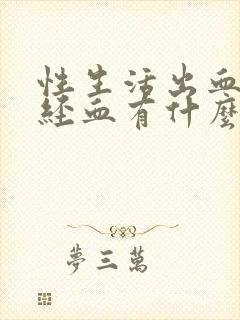 性生活出血
經血有什麼
夢三萬